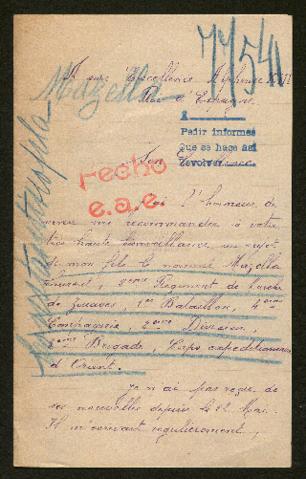 77/541
A son Excellence Alphonse XIII
Roi d'Espagne.
Mazella
A
Pedir informes
que se haga así
devolver
fecho
e.a.e.
l'honneur de
venir me recommander à votre
très haute bienveillance, au sujet
de mon fils le nommé Mazella
Vincent, 2eme Régiment de marche
de Zouaves, 1er Bataillon, 4eme
Compagnie, 2eme Division,
Brigade, Corps expéditionnaire
d'Orient.
Je n'ai pas reçu de
ses nouvelles depuis le 22 Mai.
Il m'écrivait régulièrement,